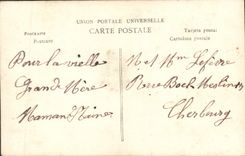 UNION POSTALE UNIVERSELLE
CARTE POSTALE
Postkarte
Postcard
Tarjeta postal
Cartolina postale
Pour la vielle
Grand Mère
Maman
Mr et Mm Lefèvre
Rue Bock
Cherbourg